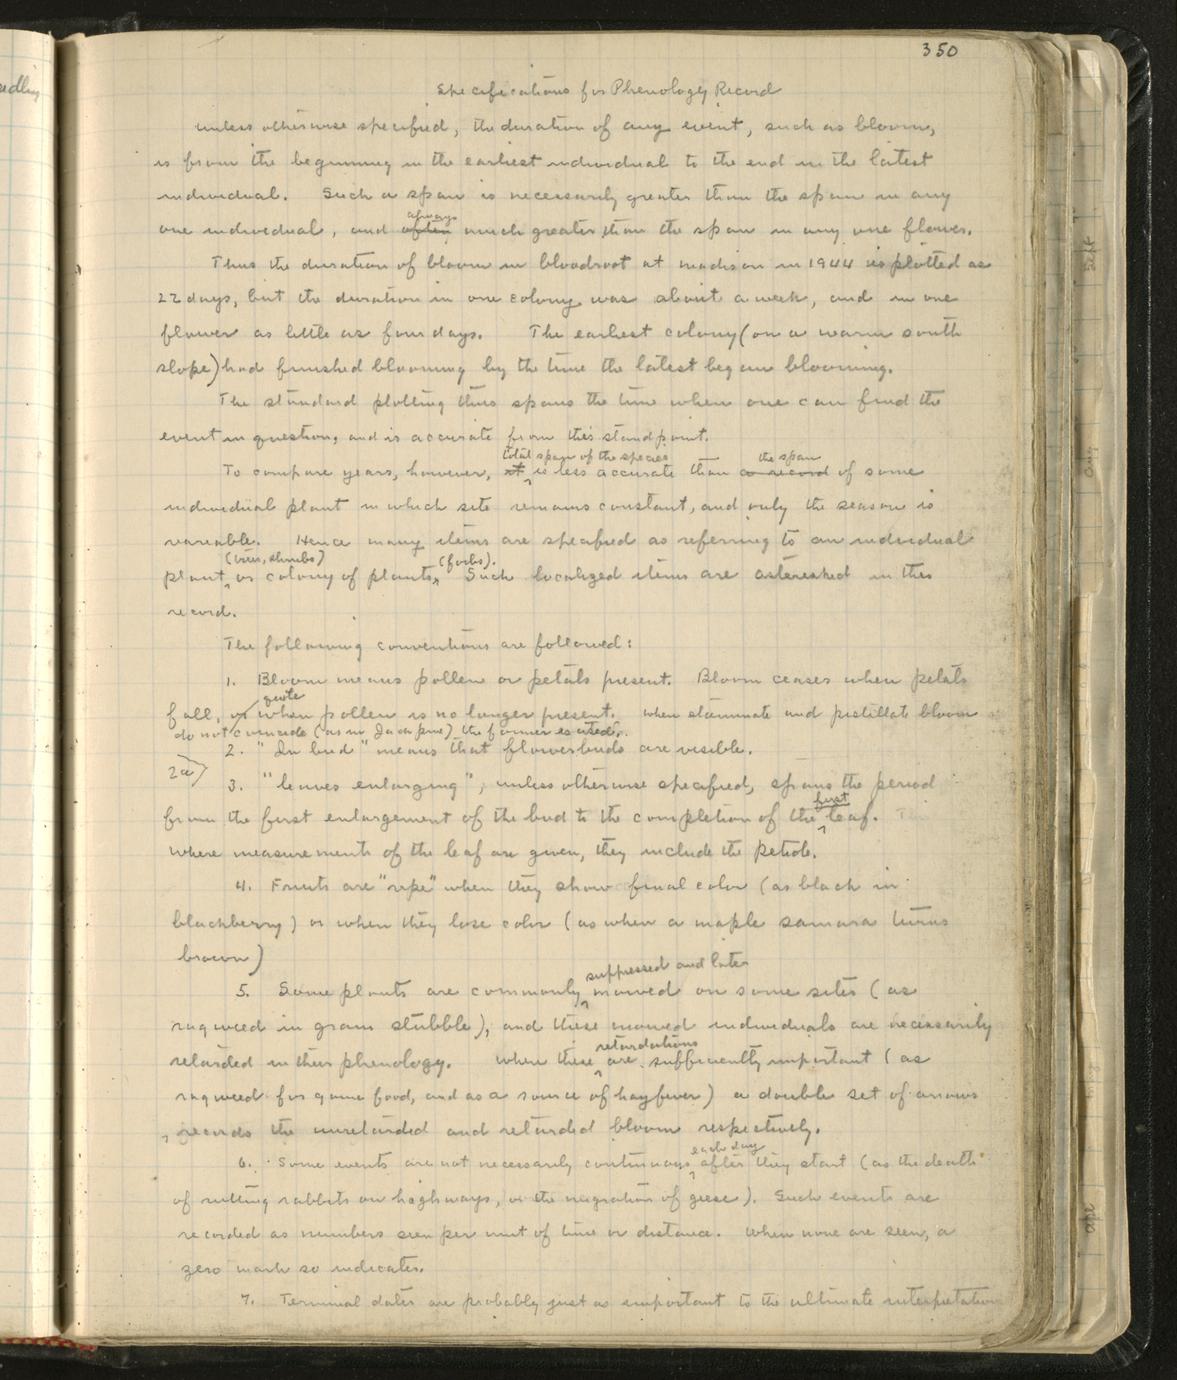 350
Specifications for Phenology Record
unless otherwise specified, the duration of any event, such as bloom,
is from the beginning in the earliest individual to the end in the latest
individual. Such a span is necessarily greater than the span in any
always
one individual, and often much greater than the span in any one flower.
Thus the duration of bloom in bloodroot at madison in 1944 is plotted as
22 days, but the duration in one colony was about a week, and in one
flower as little as four days. The earliest colony (on a warm south
slope) had finished blooming by the time the latest began blooming.
The standard plotting thus spans the time when one can find the
event in question, and is accurate from this standpoint.
total span of the species the span
To compare years, however, it is less accurate than a record of some
individual plant in which site remains constant, and only the season is
variable. Hence many items are specified as referring to an individual
shrubs) (forbs).
plant or colony of plants. Such localized items are asterisked in this
record.
The following conventions are followed:
1. Bloom means pollen or petals present. Bloom ceases when petals
quote
fall, or when pollen is no longer present. when staminate and pistillate bloom
do not coincide (as in Jack pine) the former is used.
2. "In bud" means that flowerbuds are visible.
2a)
3. "leaves enlarging", unless otherwise specified, spans the period
first
from the first enlargement of the bud to the completion of the leaf.
where measurements of the leaf are given, they include the petiole.
4. Fruits are "ripe" when they show final color (as black in
blackberry) or when they lose color (as when a maple samara turns
brown)
suppressed and later
5. Some plants are commonly mowed on some sites (as
ragweed in grain stubble), and these mowed individuals are necessarily
retardations
retarded in their phenology. when these are sufficiently important (as
ragweed for game food, and as a source of hayfever) a double set of arrows
records the unretarded and retarded bloom respectively.
each day
6. Some events are not necessarily continuous after they start (as the death
of rutting rabbits on highways, or the migration of geese). Such events are
recorded as numbers seen per unit of time or distance. When none are seen, a
zero mark so indicates.
7. Terminal dates are probably just as important to the ultimate interpretation